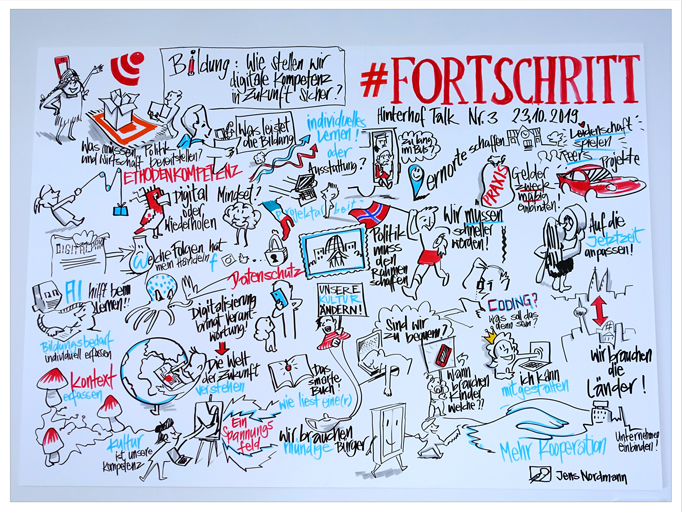 Bildung: Wie stellen wir
digitale Kompetenz
in Zukunft sicher?
#FORTSCHRITT
Hinterhof Talk Nr. 3 23.10.2019
Was müssen Politik
und Wirtschaft bereitstellen?
Was leistet
die Bildung
individuelles
Lernen!
oder
Ausstattung?
zu lang
im Bus
ernorte schaffen!
PRAXIS
Gelder
zweck
mäßig
einbinden!
Leidenschaft
spielen!
Peers
Projekte
ETHODENKOMPETENZ
Digital
oder
Wiederholen
Mindset?
Projektarbeit
Politik
muss
den
Rahmen
schaffen
Wir müssen
schneller
werden!
Auf die
Jetztzeit
anpassen!
DIGITAL
Welche Folgen hat
mein Handeln
Datenschutz
AI hilft beim
Lernen!!
Bildungsbedarf
individuell erfassen
Digitalisierung
bringt Verant-
wortung!
UNSERE
KULTUR
ÄNDERN!
Sind wir
zu bequem?
CODING?
Was soll das
denn sein?
Kontext
erfassen
Die Welt
der Zukunft
verstehen
Das
smarte
Buch
wie liest eine(r)
Wann
brauchen
Kinder
welche??
Ich kann
mitgestalten
wir brauchen
die
Länder!
Kultur
ist unsere
Kompetenz
Ein
Spannungs
feld
wir brauchen
mündige Bürger!
Mehr Kooperation
Unternehmen
einbinden!
Jens Nordmann